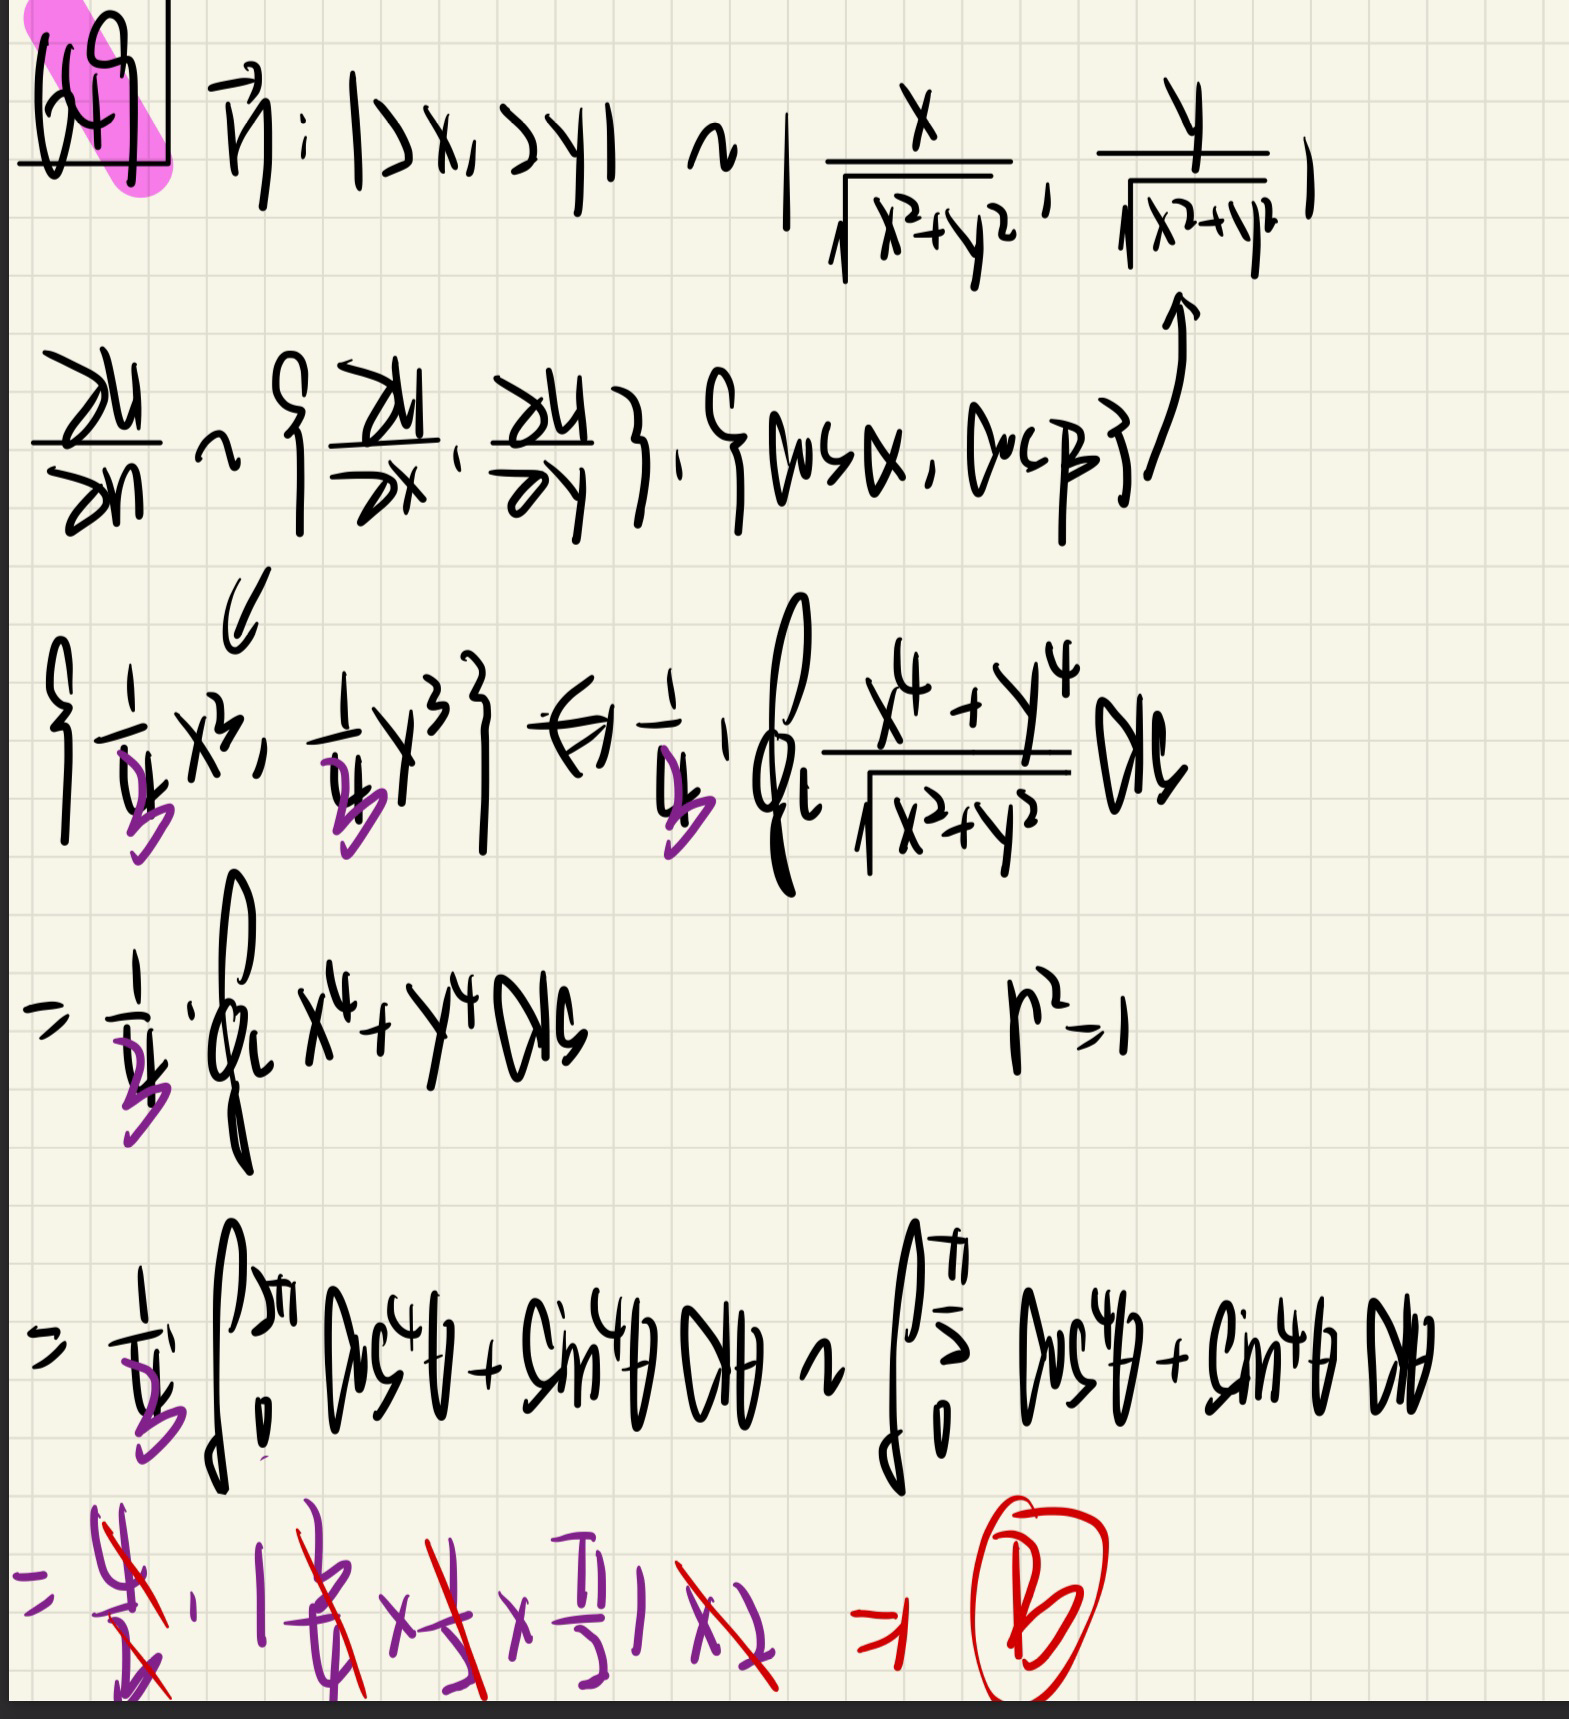 049 \vec{n}: (2x, 2y) ~ ( \frac{x}{\sqrt{x^2+y^2}}, \frac{y}{\sqrt{x^2+y^2}} )
\frac{∂u}{∂n} ~ { \frac{∂u}{∂x}, \frac{∂u}{∂y} } · { cosα, cosβ }
{ \frac{1}{3} x^3, \frac{1}{3} y^3 } \frac{1}{3} · ∮_L \frac{x^4+y^4}{\sqrt{x^2+y^2}} ds
= \frac{1}{3} · ∮_L x^4+y^4 ds r^2=1
= \frac{1}{3} · ∫_0^{2π} cos^4θ + sin^4θ dθ ~ ∫_0^{\frac{π}{2}} cos^4θ + sin^4θ dθ
= \frac{4}{3} · ( \frac{3}{4} × \frac{1}{2} × \frac{π}{2} ) × 2 ⇒ B